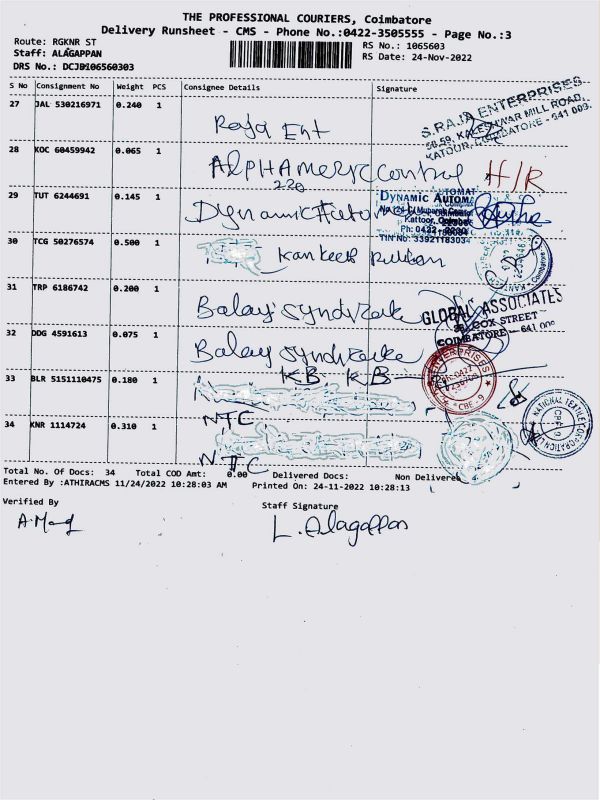 THE PROFESSIONAL COURIERS, Coimbatore
Delivery Runsheet - CMS - Phone No.:0422-3505555 - Page No.:3
Route: RGKNR ST
RS No.: 1065603
Staff: ALAGAPPAN
RS Date: 24-Nov-2022
DRS No.: DCJB106560303
S No Consignment No Weight PCS Consignee Details Signature
27 JAL 530216971 0.240 1
Raja Ent
S.RAJA ENTERPRISES
56,59, KALESHWAR MILL ROAD,
KATOOR, COIMBATORE - 641 009.
28 KOC 60459942 0.065 1
Alpha Meric control H/R
220
29 TUT 6244691 0.145 1
Dynamic
DYNAMIC AUTOM
Kattoor,
Ph: 0422
TIN No: 3392118303
30 TCG 50276574 0.500 1
31 TRP 6186742 0.200 1
Balaji
GLOBAL ASSOCIATES
COX STREET
COIMBATORE - 641 009
32 DDG 4591613 0.075 1
Balaji
KB KB
33 BLR 5151110475 0.180 1
ENTERPRISES
CBE-9
NTC
34 KNR 1114724 0.310 1
NATIONAL TEXTILE CORPORATION
NTC
Total No. Of Docs: 34 Total COD Amt: 0.00 Delivered Docs: Non Delivered
Entered By :ATHIRACMS 11/24/2022 10:28:03 AM Printed On: 24-11-2022 10:28:13
Verified By
Staff Signature
L. Alagappan